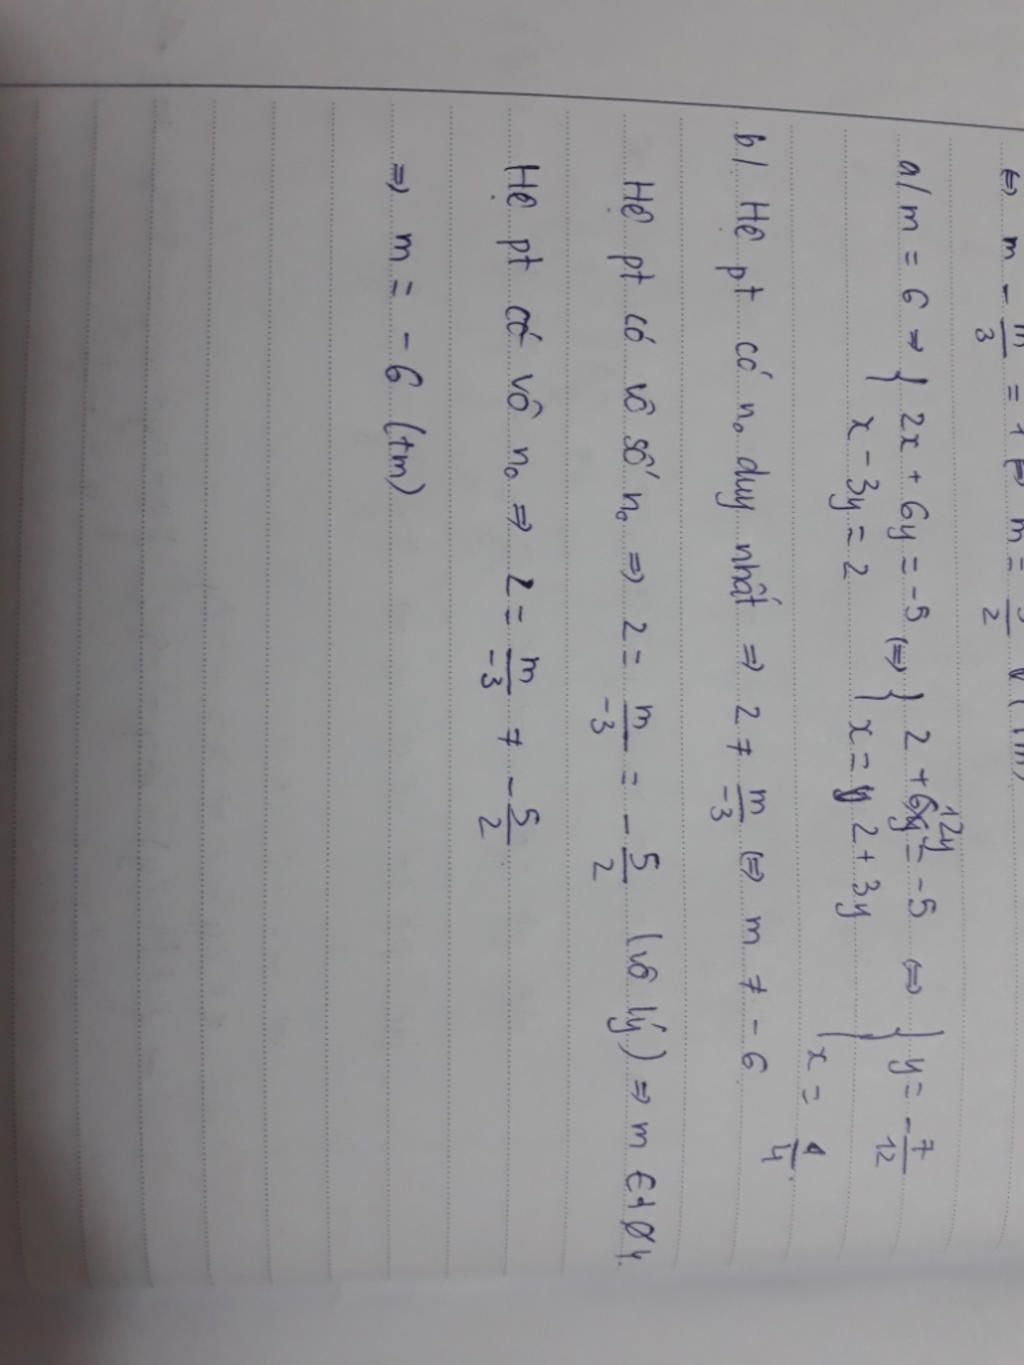 ⇔ m - m/3 = 1 ⇔ m = 3/2
a/ m = 6 ⇒ { 2x + 6y = -5 (⇔) { 2 + 12y = -5 ⇔ { y = -7/12
x - 3y = 2 x = 2 + 3y x = 1/4.
b/. Hệ pt có n₀ duy nhất ⇒ 2 ≠ m/-3 ⇔ m ≠ -6.
Hệ pt có vô số n₀ ⇒ 2 = m/-3 = -5/2 (vô lý) ⇒ m ∈ {∅}.
Hệ pt có vô n₀ ⇒ 2 = m/-3 ≠ -5/2.
⇒ m = -6 (tm)